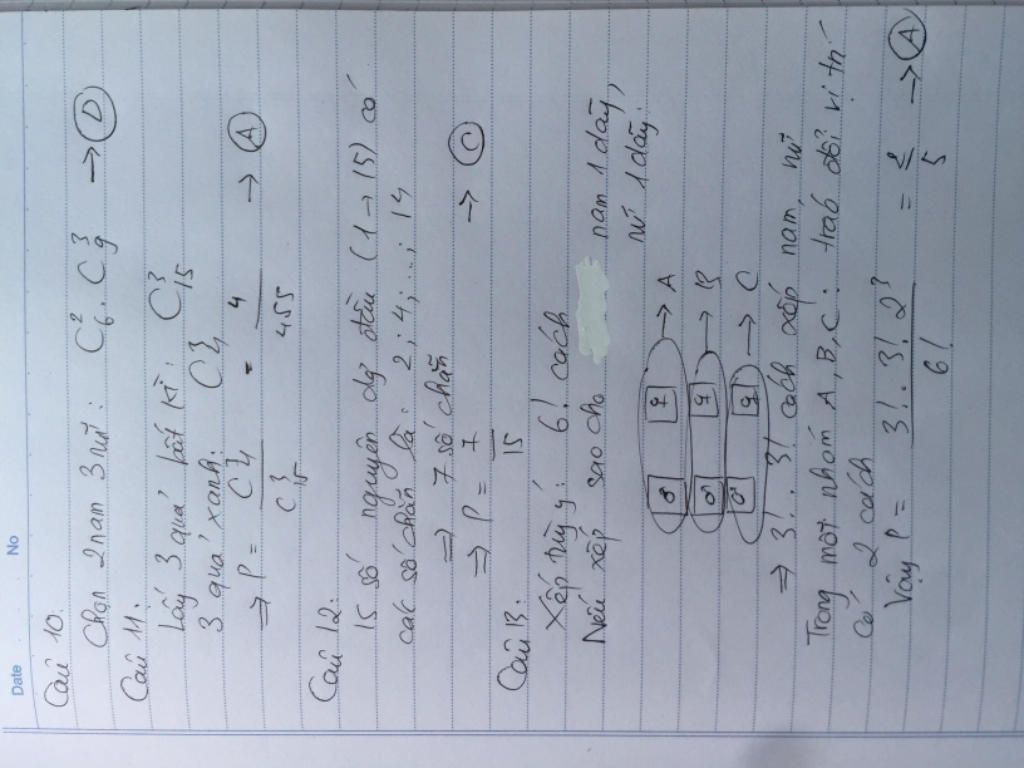 Date No
Câu 10.
Chọn 2 nam 3 nữ: C²₆ . C³₉ → D
Câu 11.
Lấy 3 quả bất kì: C³₁₅
3 quả xanh: C³₄
⇒ P = C³₄ / C³₁₅ = 4 / 455 → A
Câu 12.
15 số nguyên dg đầu (1 → 15) có
các số chẵn là: 2; 4; ...; 14
⇒ 7 số chẵn
⇒ P = 7 / 15 → C
Câu 13.
Xếp tùy ý: 6! cách
Nếu xếp sao cho nam 1 dãy,
nữ 1 dãy.
♂ ♀ → A
♂ ♀ → B
♂ ♀ → C
⇒ 3! . 3! cách xếp nam, nữ
Trong một nhóm A, B, C: trao đổi vị trí
có 2 cách
Vậy P = 3! . 3! . 2³ / 6! = 2 / 5 → A